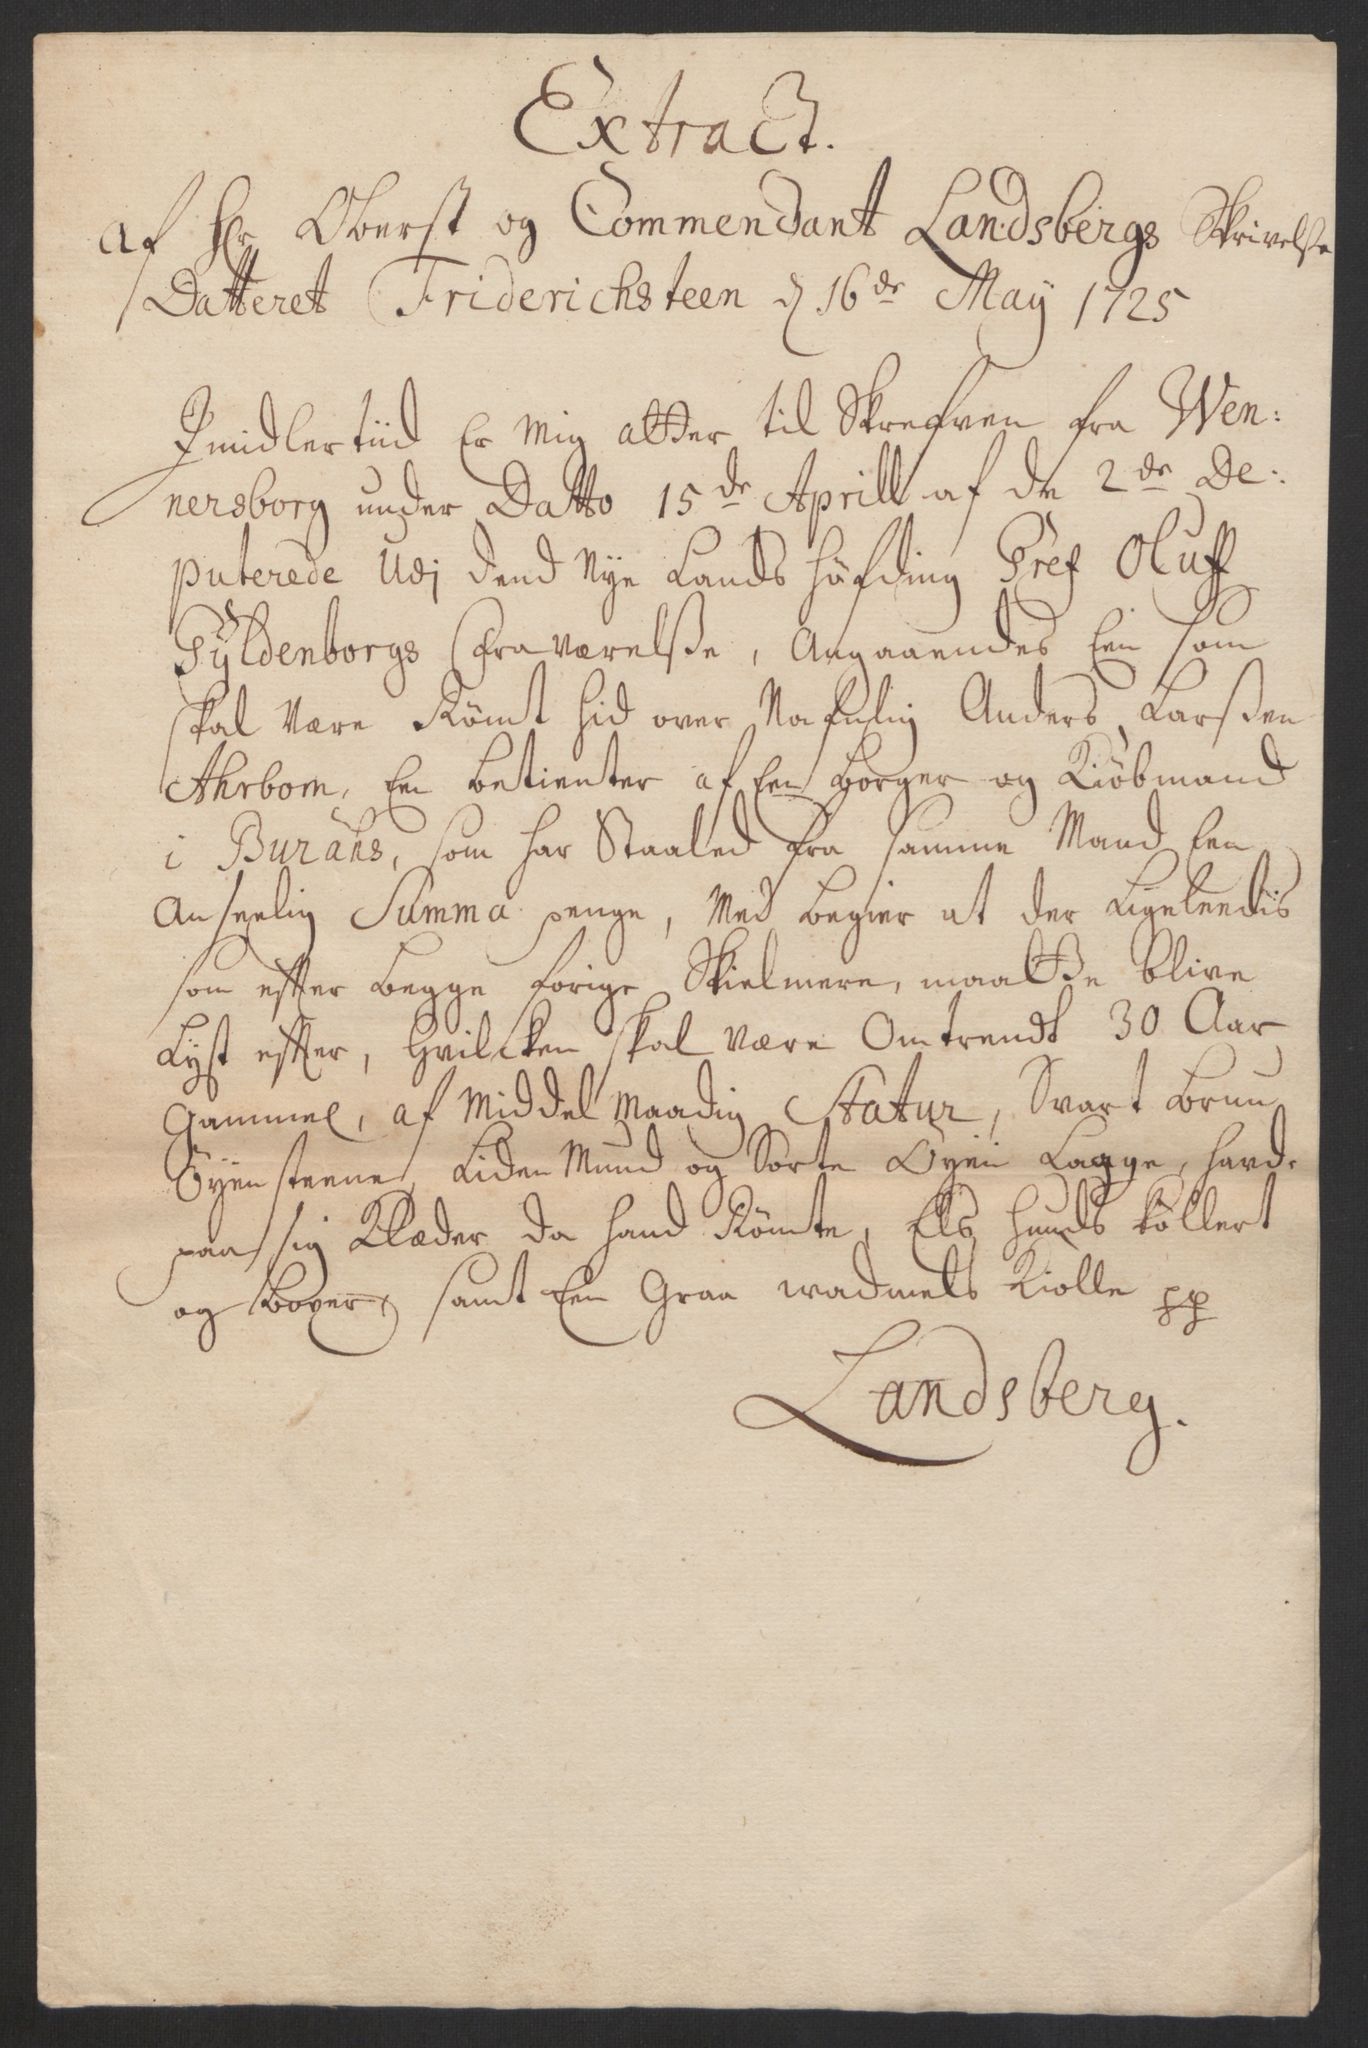 Extract.
af Hr Oberst og Commendant Landsbergs Skrivelße
Datteret Friderichsteen d 16de May 1725
Imidlertiid er mig atter til Skrefven fra Wen:
nersborg under Datto 15de Aprill af de 2de De:
puterede udj dend Nye Lands Höfding Gref Oluff
Gyldenborgs fraværelße, Angaaendes Een som
skal være Römt hid over Nafnlig Anders Larßen
Ahrbom, En betienter af Een borger og Kiöbmand
i Buråhs, som har Staaled fra samme Mand Een
Anseelig Summa penge, med begier at der Ligeleedis
som efter begge forige Skielmere, maatte blive
Lyst efter, hvilcken skal være Omtrendt 30 Aar
Gammel, af Middelmaadig Statur, Svart brun
Öyensteene, Liden Mund og Sorte Öyen Lagge, havd
paa sig Klæder da hand Römte, Els huuds köllert
og boxer, samt Een Graa wadmels Kiolle pp
Landsberg.